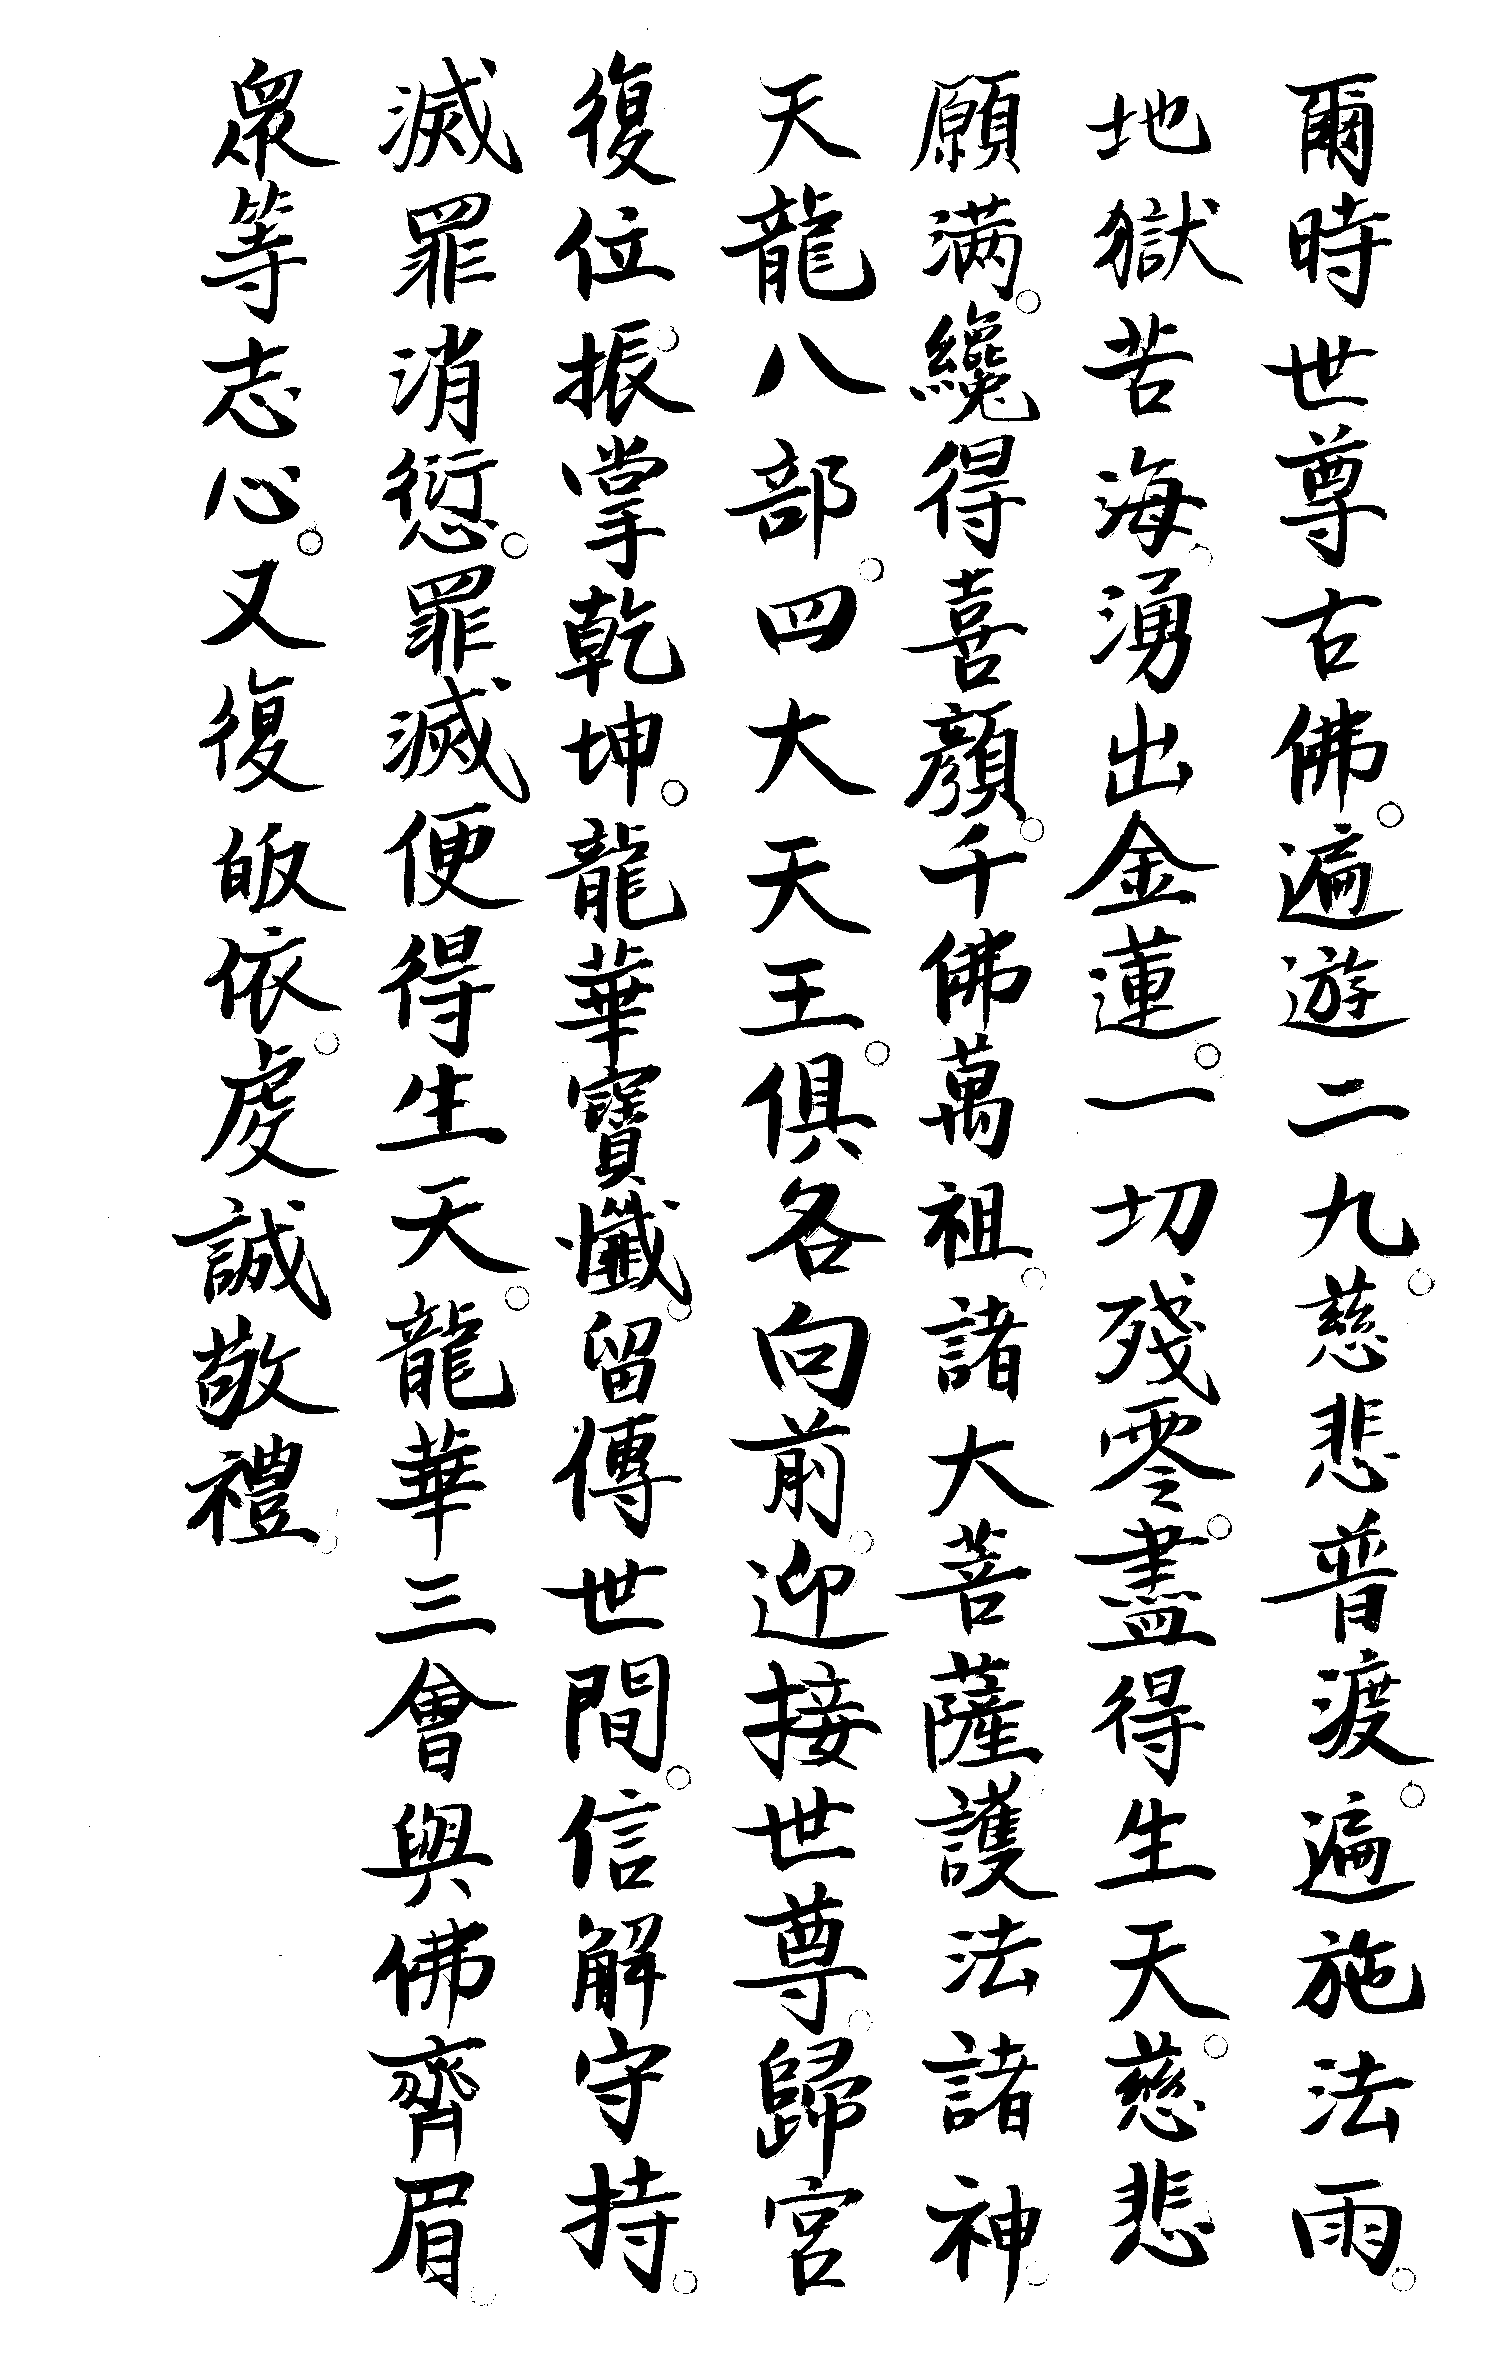 爾時世尊古佛。遍遊二九。慈悲普渡。遍施法雨。
地獄苦海。湧出金蓮。一切殘零。盡得生天。慈悲
願满。纔得喜顏。千佛萬祖。諸大菩薩護法諸神。
天龍八部。四大天王。俱各向前。迎接世尊。歸宮
復位。振掌乾坤。龍華寶懺。留傳世間。信解守持。
滅罪消愆。罪滅便得生天。龍華三會與佛齊眉。
眾等志心。又復皈依。虔誠敬禮。